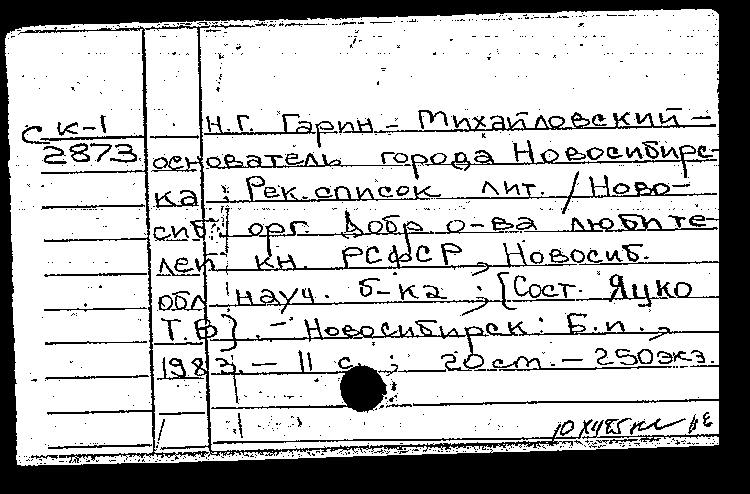 СК-1
2873
Н.Г. Гарин-Михайловский -
основатель города Новосибирс-
ка : Рек.список лит. / Ново-
сиб. орг Добр о-ва любите-
лей кн. РСФСР, Новосиб.
обл науч. б-ка ; [Сост. Яцко
Т.В]. - Новосибирск: Б.и.,
1983. - 11 с. ; 20 см. - 250экз.